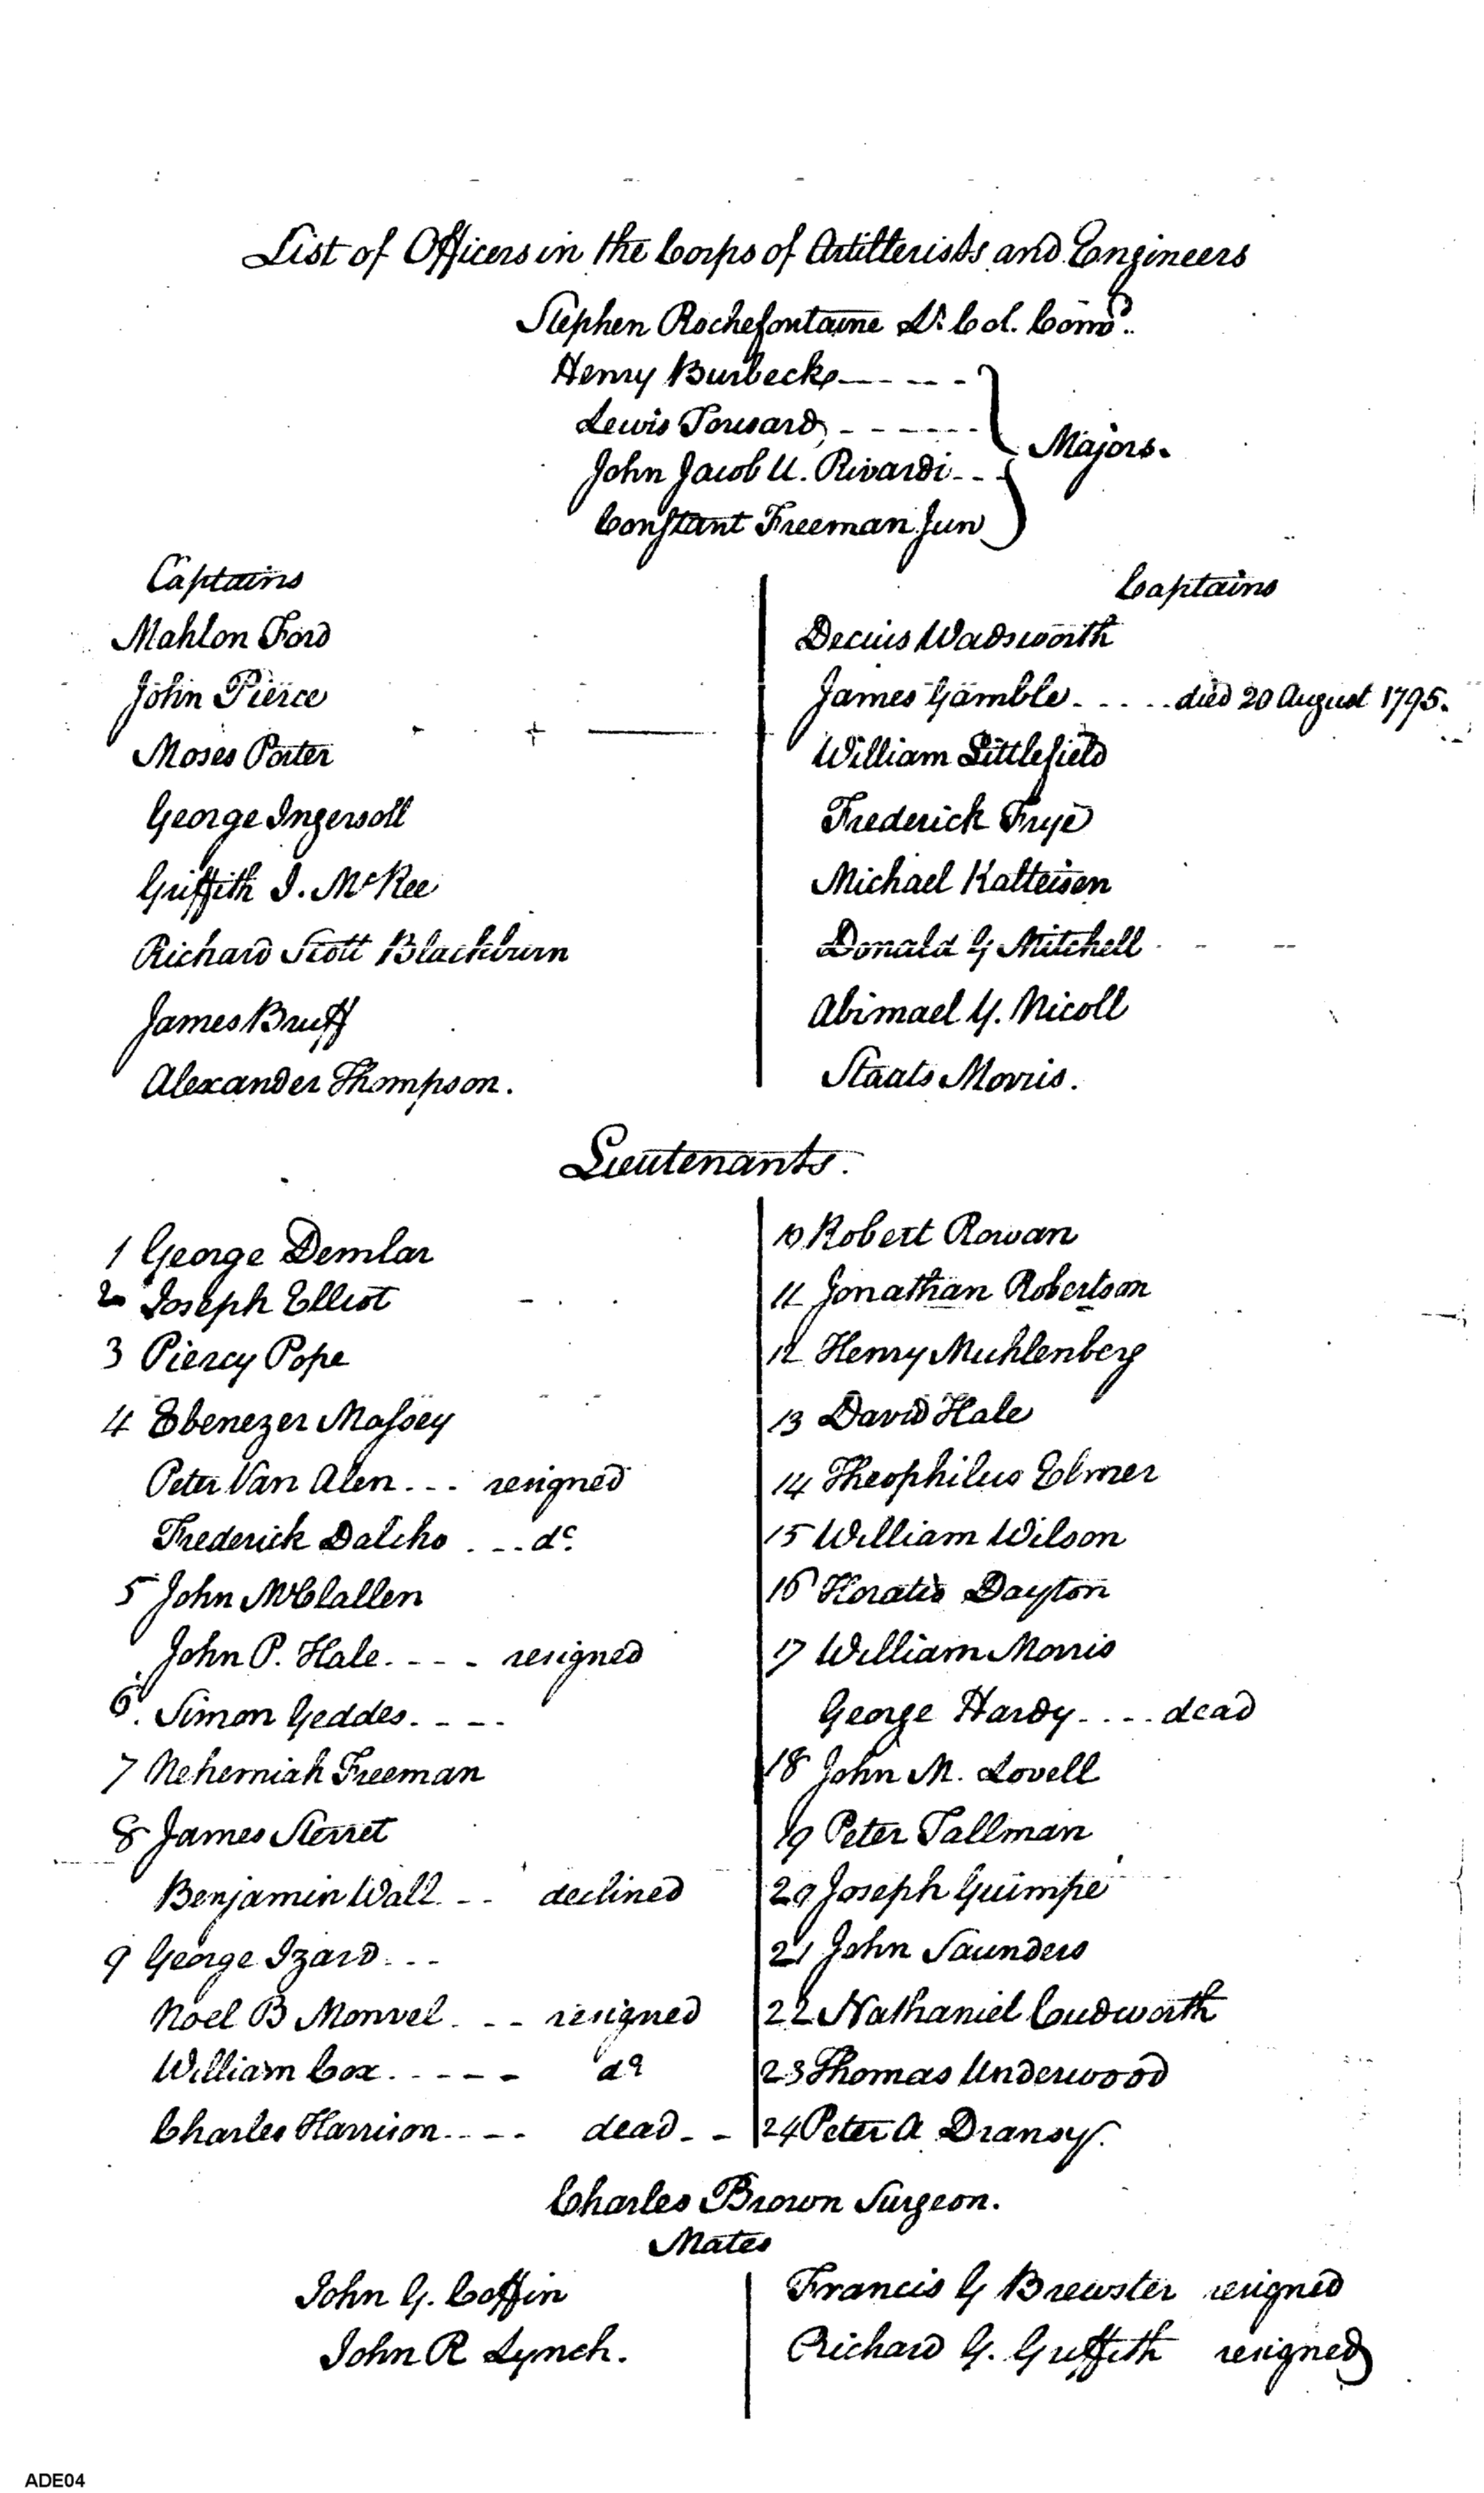 List of Officers in the Corps of Artillerists and Engineers
Stephen Rochefontaine Lt. Col. Comd.
Henry Burbeck
Lewis Tousard
Majors.
John Jacob U. Rivardi
Constant Freeman Jun
Captains
Mahlon Ford
John Pierce
Moses Porter
George Ingersoll
Griffith J. McRee
Richard Scott Blackburn
James Bruff
Alexander Thompson.
Captains
Decius Wadsworth
James Gamble - - - - - died 20 August 1795.
William Littlefield
Frederick Frye
Michael Kalteisen
Donald G Mitchell
Abimael Y. Nicoll
Staats Morris.
Lieutenants.
1 George Demlar
2 Joseph Elliot
3 Piercy Pope
4 Ebenezer Massey
Peter Van Alen - - - resigned
Frederick Dalcho - - - do.
5 John McClallen
John P. Hale - - - - resigned
6. Simon Geddes - - - -
7 Nehemiah Freeman
8 James Sterret
Benjamin Wall - - declined
9 George Izard - - -
Noel B Monvel - - - resigned
William Cox - - - - - do
Charles Harrison - - - - dead - -
10 Robert Rowan
11 Jonathan Robertson
12 Henry Muhlenberg
13 David Hale
14 Theophilus Elmer
15 William Wilson
16 Horatio Dayton
17 William Morris
George Hardy - - - - dead
18 John M. Lovell
19 Peter Tallman
20 Joseph Guimpe
21 John Saunders
22 Nathaniel Cudworth
23 Thomas Underwood
24 Peter A Dransy.
Charles Brown Surgeon.
Mates
John G. Coffin
John R Lynch.
Francis G Brewster resigned
Richard G. Griffith resigned
ADE04